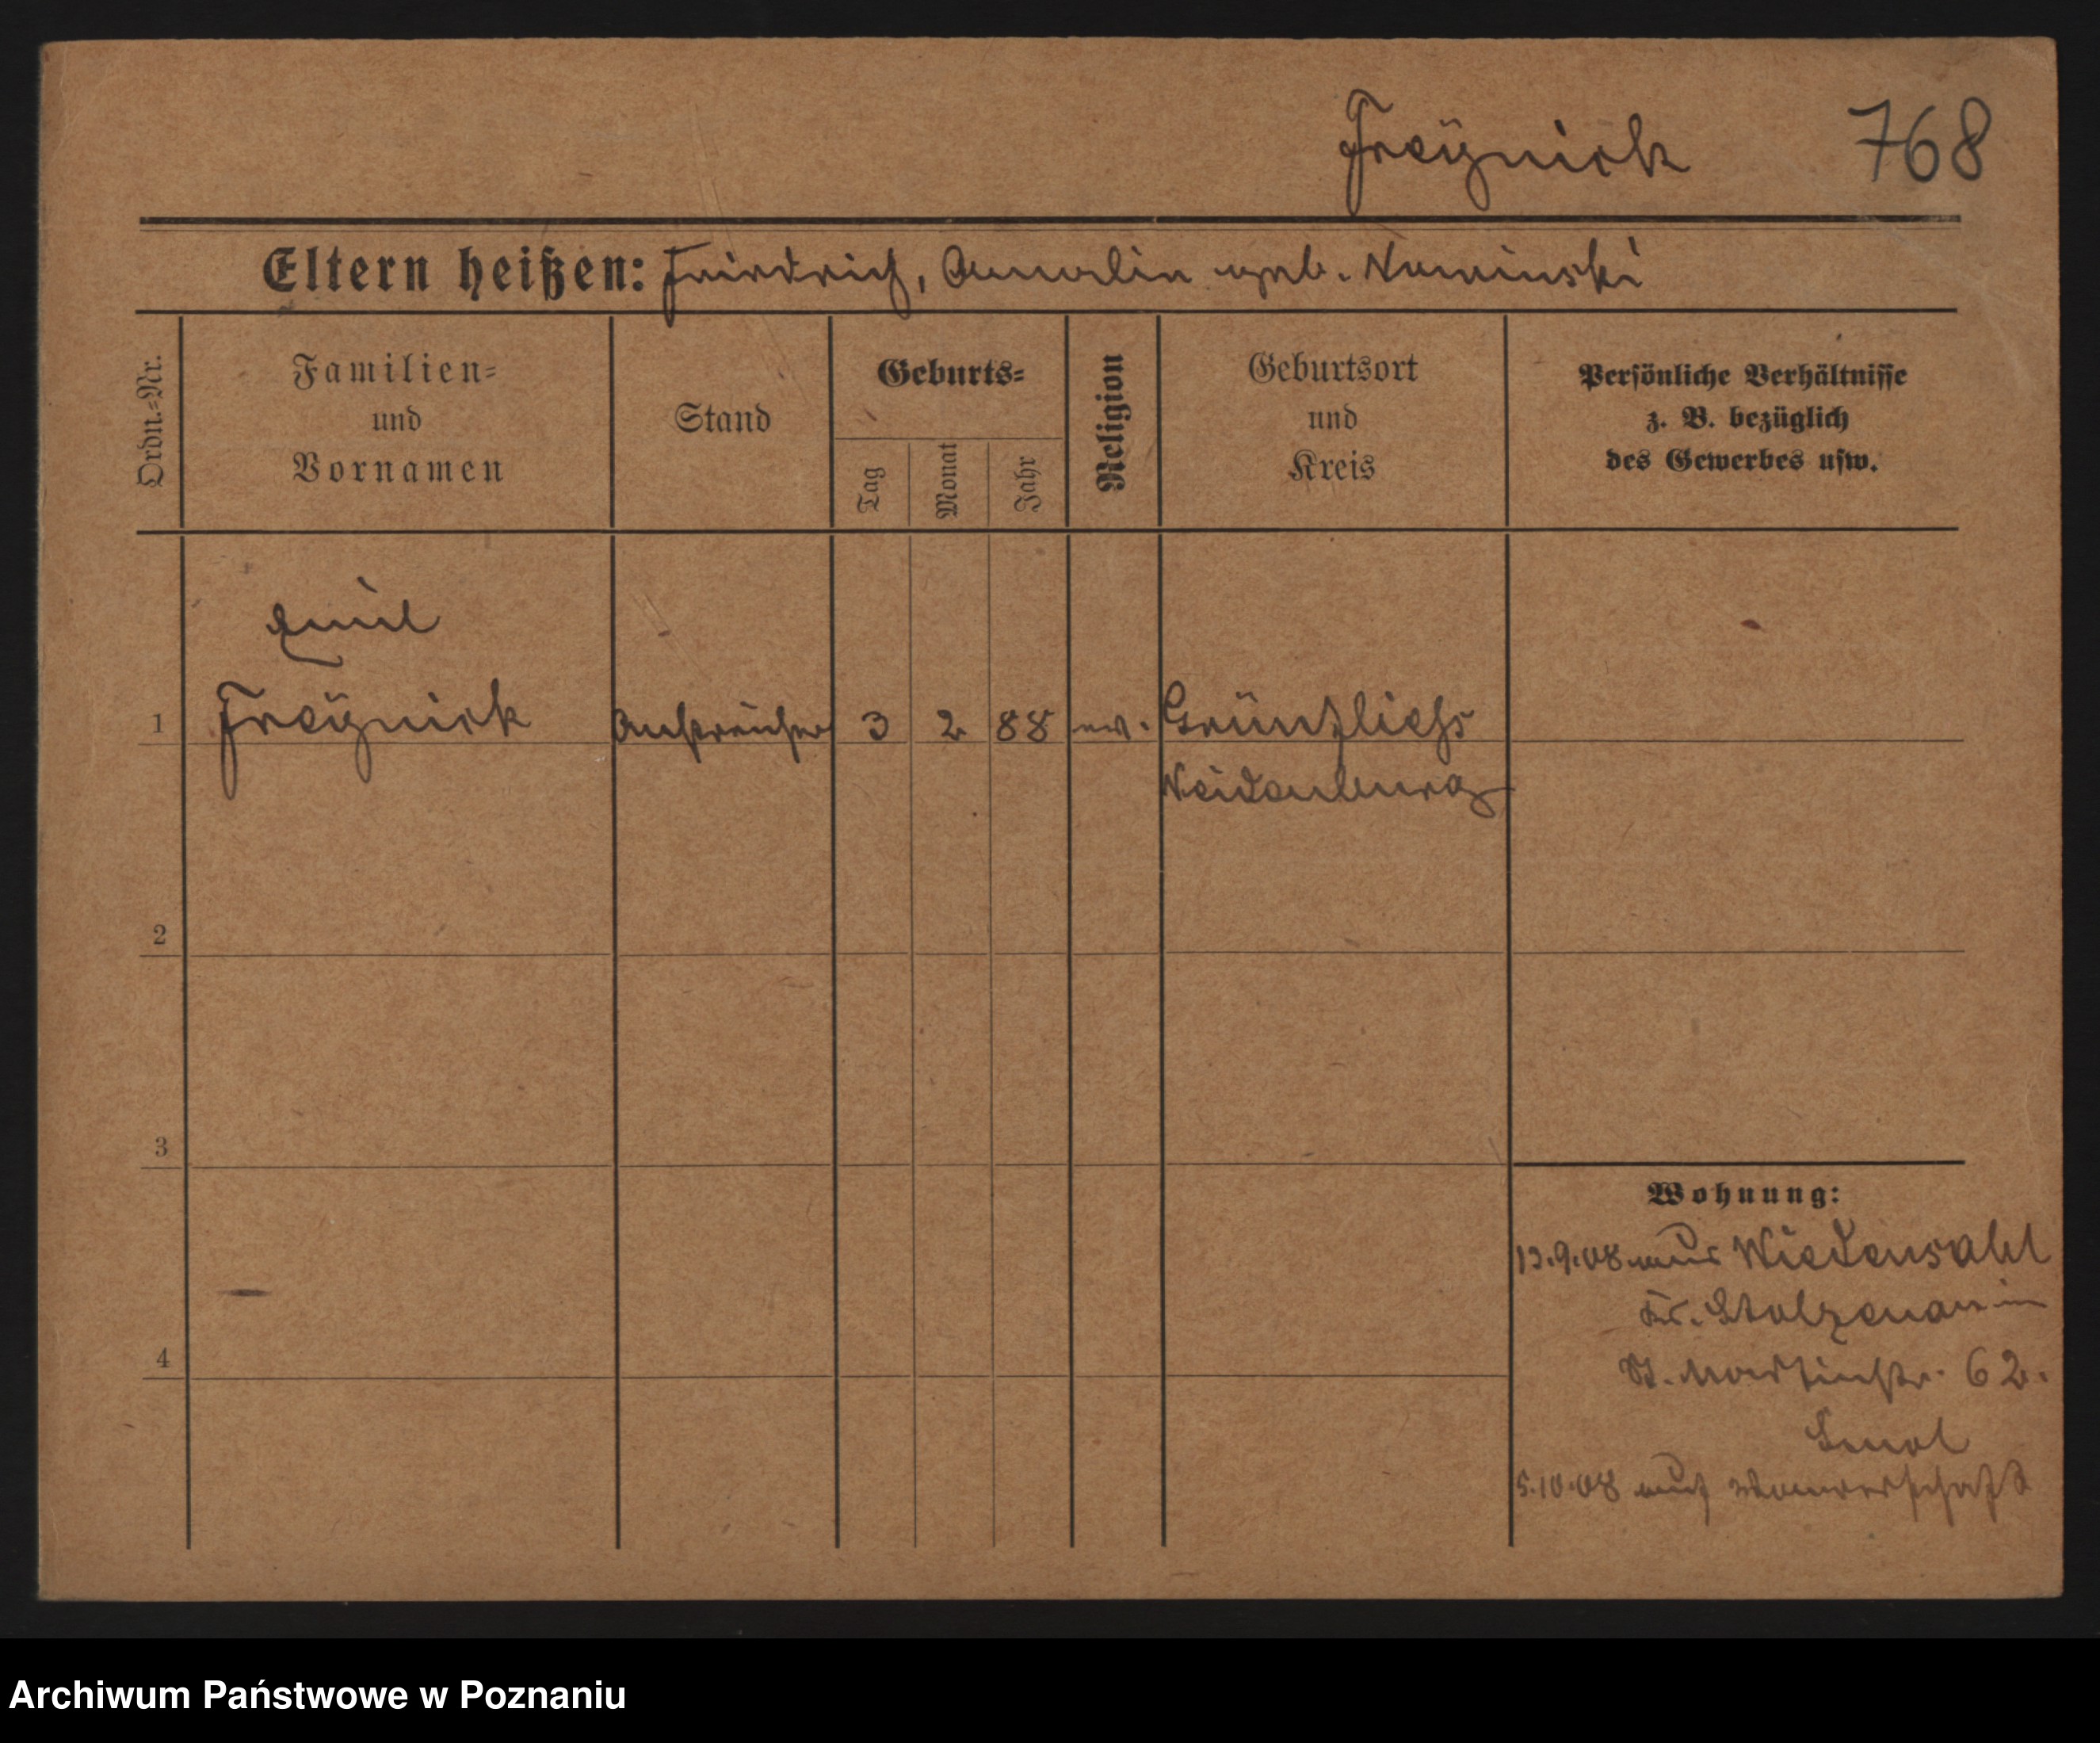 Freÿnick 768
Eltern heißen: Friedrich, Amalie geb. Naminski
Ordn.=Nr.
Familien=
und
Vornamen
Stand
Geburts=
Tag
Monat
Jahr
Religion
Geburtsort
und
Kreis
Persönliche Verhältnisse
z. B. bezüglich
des Gewerbes usw.
Emil
1 Freÿnick Anstreicher 3 2 88 ev.
Neidenburg
2
3
4
Wohnung:
13.9.08 aus Wiedensahl
Kr. Stolzenau in
St. Martinstr. 62.
5.10.08 auf Wanderschaft
Archiwum Państwowe w Poznaniu